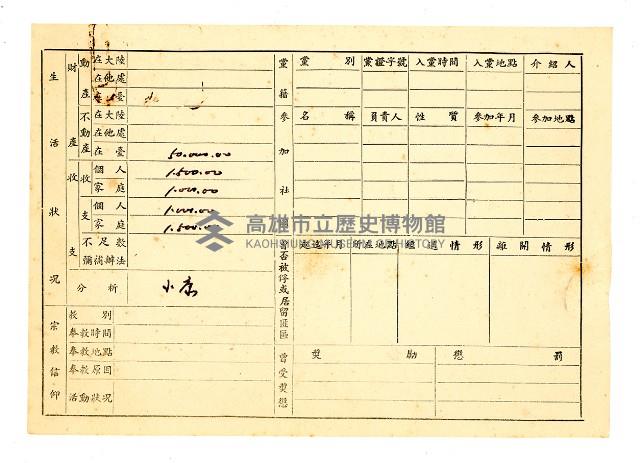 生活狀況
財產
動產
在大陸
在他處
在臺
不動產
在大陸
在他處
在臺 50.000.00
收支
收
個人 1.500.00
家庭 1.000.00
支
個人 1.000.00
家庭 1.500.00
不足數
彌補辦法
分析 小康
宗教信仰
教別
奉教時間
奉教地點
奉教原因
活動狀況
黨籍
黨別 黨證字號 入黨時間 入黨地點 介紹人
參加社
名稱 負責人 性質 參加年月 參加地點
曾否被俘或居留匪區
起迄年月 所在地點 經過情形 離開情形
曾受獎懲
獎勛 懲罰
高雄市立歷史博物館
KAOHSIUNG MUSEUM OF HISTORY